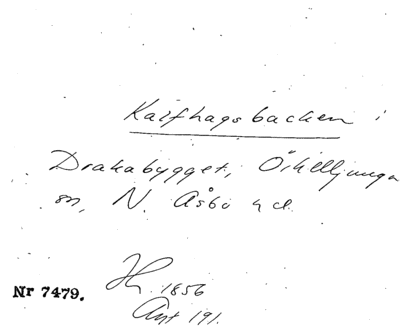 Kalfhagsbacken i
Drakabygget, Örkelljunga
sn, N. Åsbo hd.
1856
Nr 7479.
191.